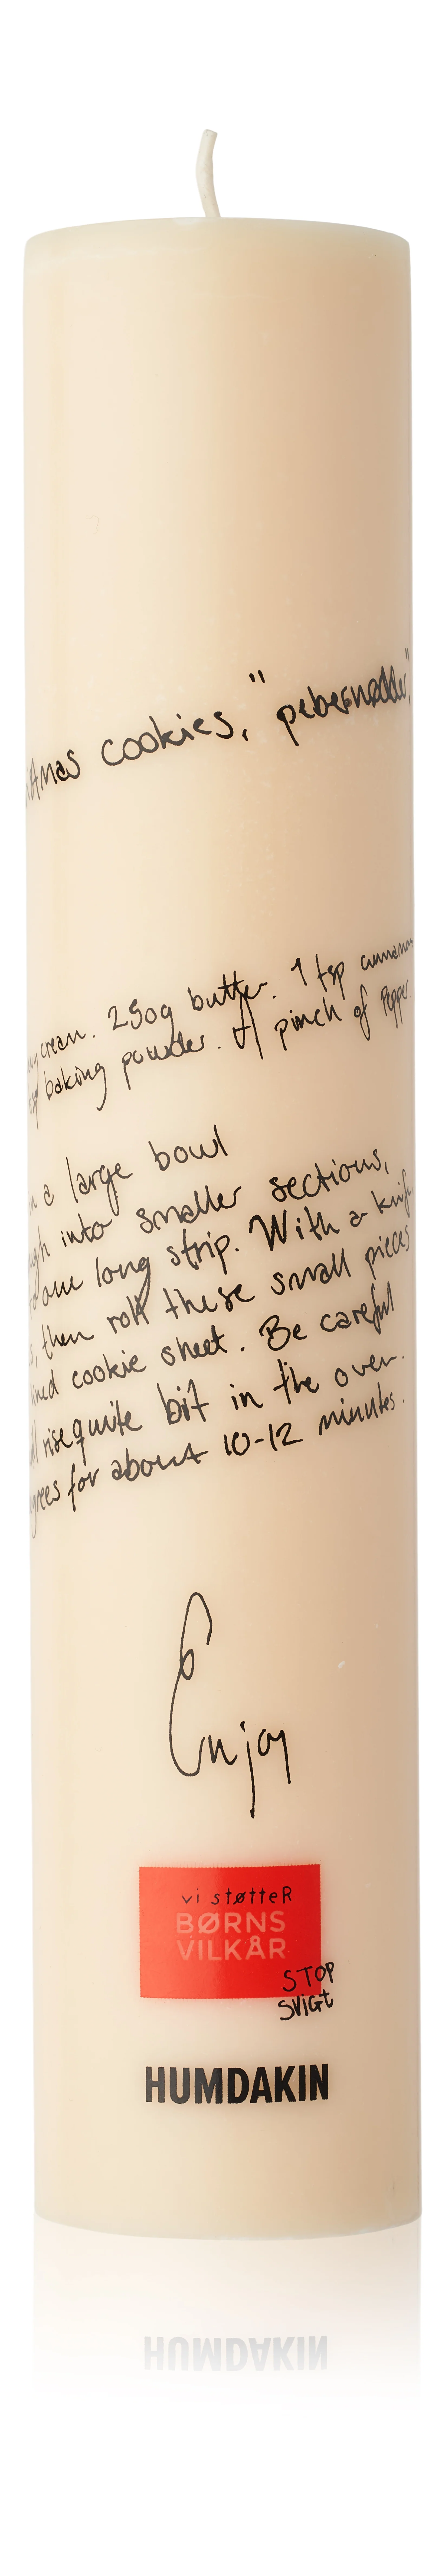 istmas cookies, "pebernødder",
cream. 250g butter. 1 tsp cinnamon
baking powder. +/ pinch of Pepper.
n a large bowl
ugh into smaller sections,
to one long strip. With a knife
s, then roll these small pieces
lined cookie sheet. Be careful
ll rise quite bit in the oven.
grees for about 10-12 minutes.
Enjoy
vi støtteR
BØRNS
VILKÅR
STOP
SVIGt
HUMDAKIN